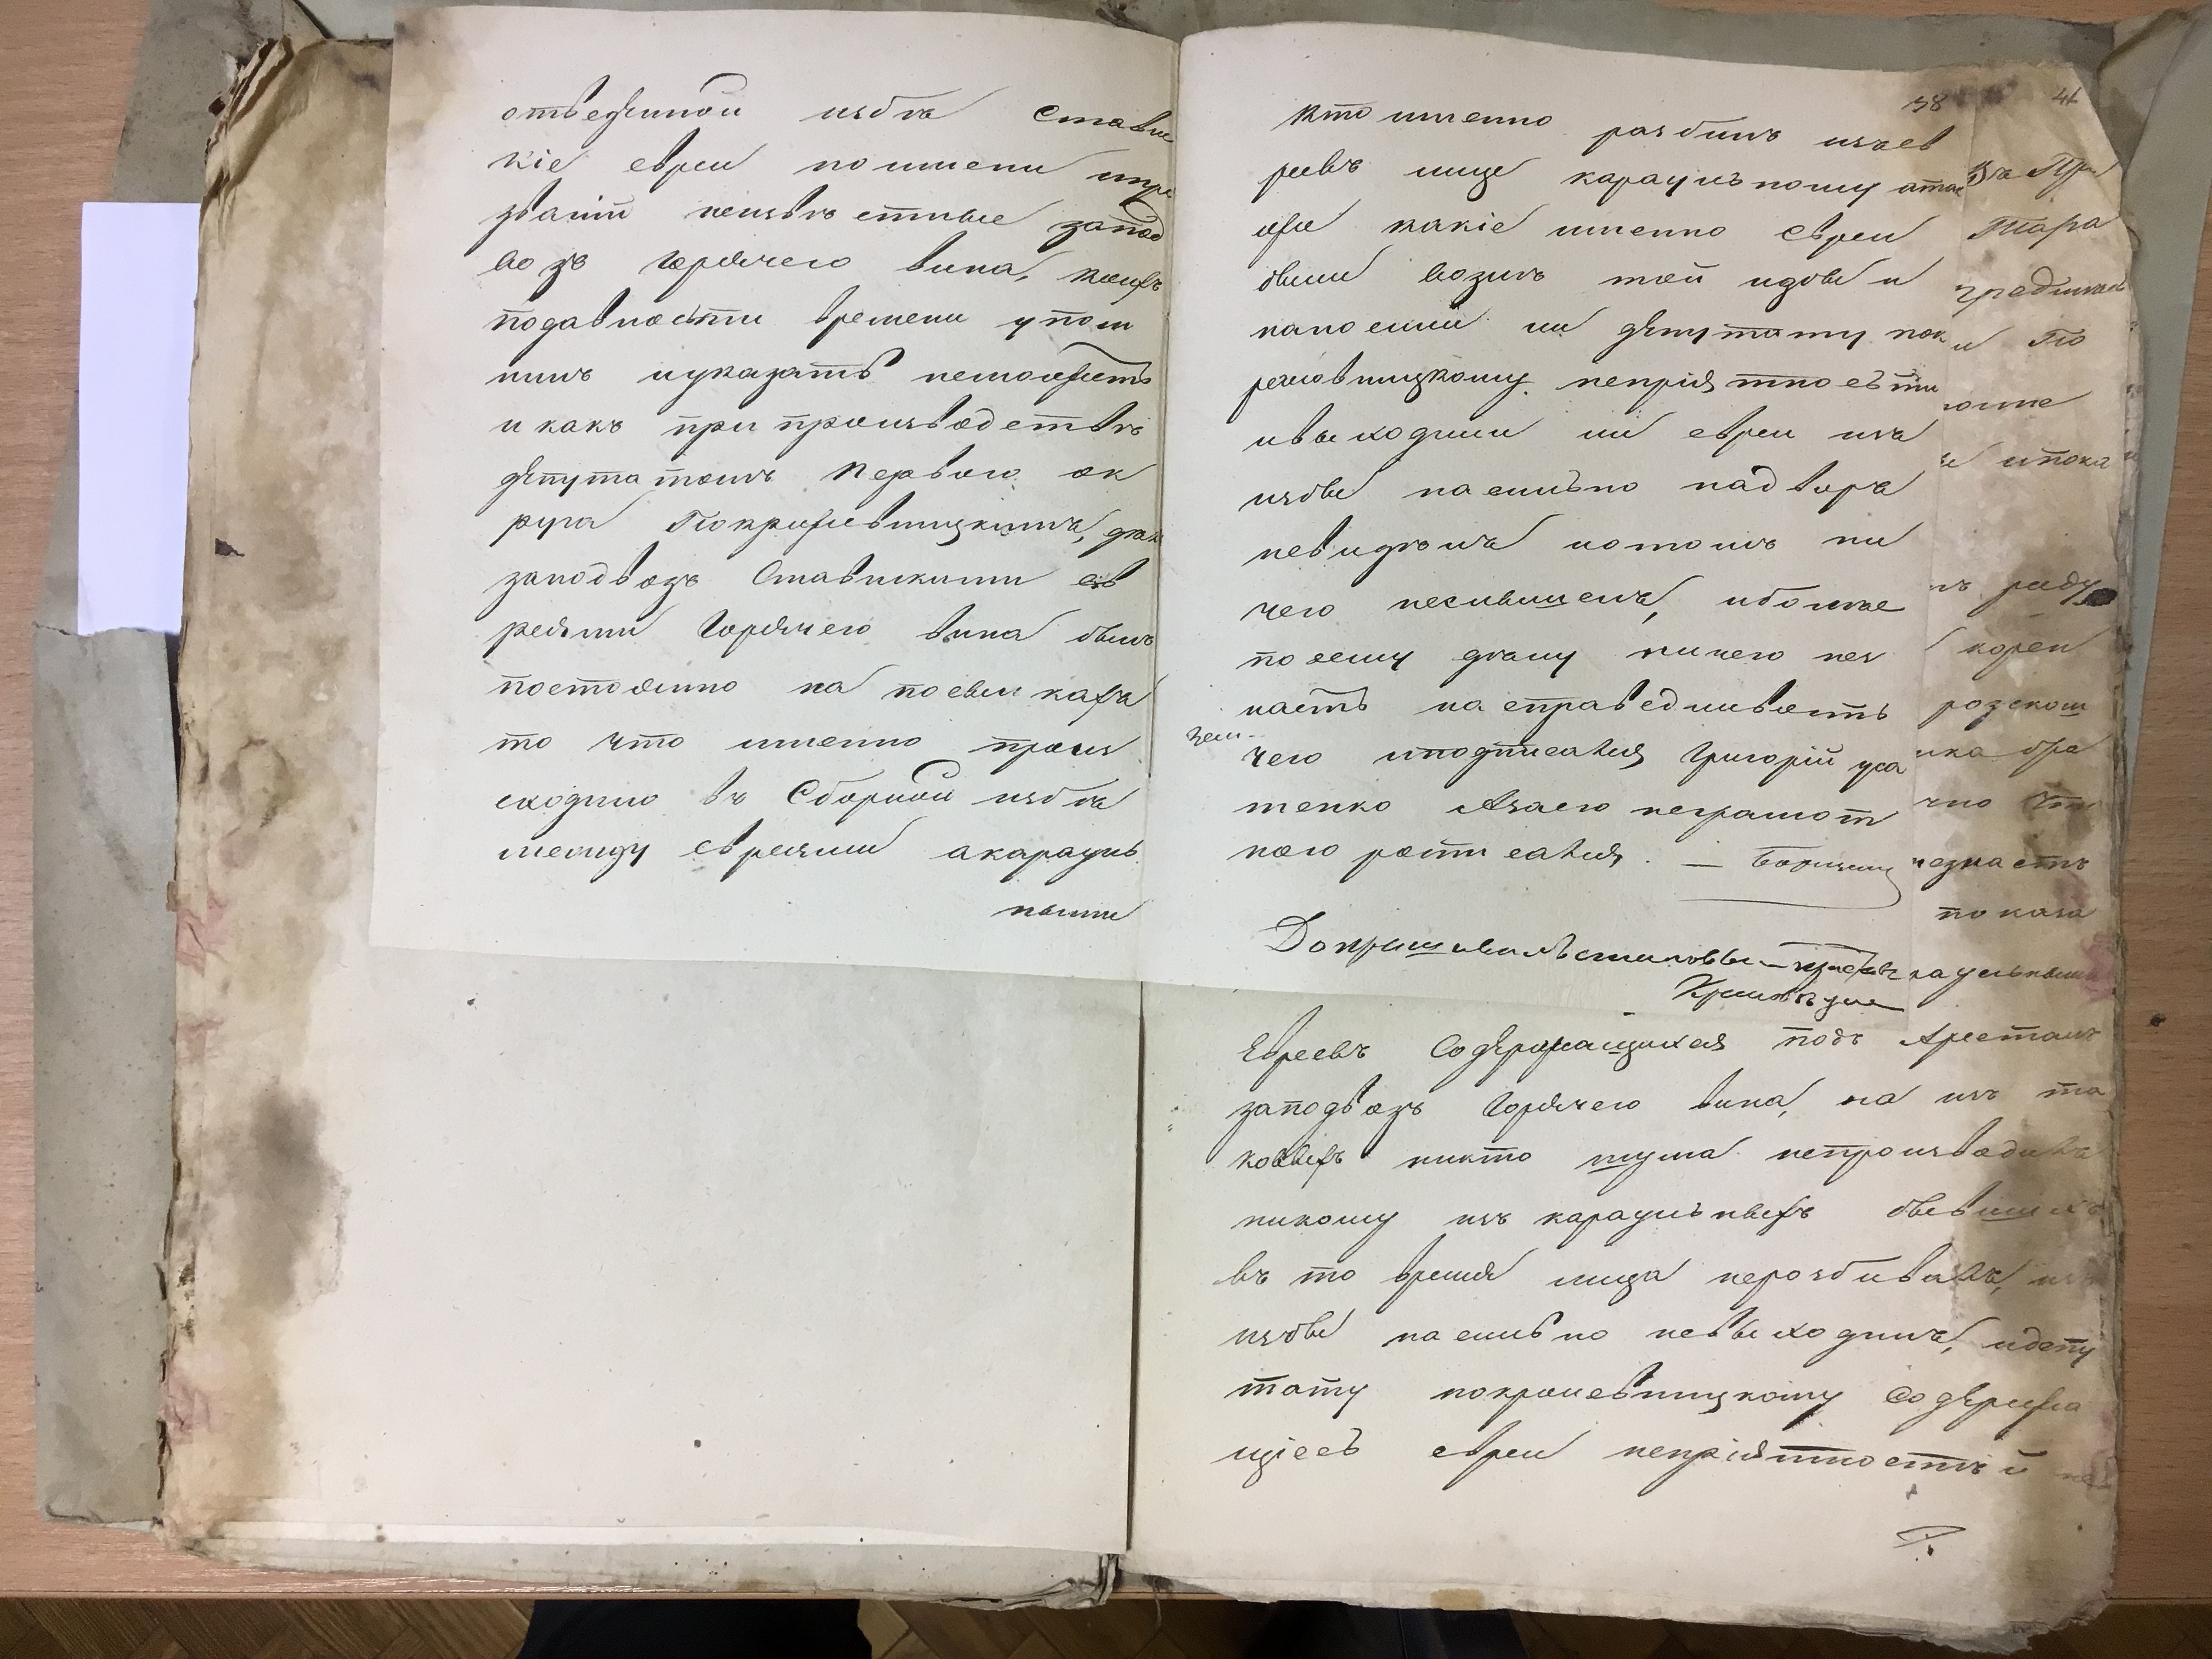 отведенной избѣ Ставис
кіе евреи по имени ипро
званій неизвѣстные запод
возъ горячего вина, коихъ
подавности времени упом
нить иуказать неможетъ
и какъ при производствѣ
депутатомъ первого ок
руга Покрошевницкимъ, дѣла
заподвозъ Ставискими ев
реями горячего вина былъ
постоянно на посылкахъ
то что именно проис
ходило въ Сборной избѣ
между евреями а караулъ
ными
38
кто именно разбилъ изъев
реевъ лице караульному атак
же какіе именно евреи
были возлѣ той избы и
наносили ли депутату пок
рошовницкому непріятности
ивыходили ли евреи изъ
избы насильно надворъ
невидѣлъ иотомъ ни
чего неслышелъ, иболѣе
посему делу ничего нез
наетъ насправедливость
чего иподписался Григорій уса
тенко Азаего неграмот
ного росписался. —
41
Тара
и По
и пока
корен
розском
незнаетъ
показа
раульными
Евреевъ Содержащихся подъ Арестомъ
заподвозъ горячего вина, на изъ та
ковыхъ никто шума непроизводилъ
никому изъ караульныхъ бывшихъ
въ то время лица неразбивалъ, изъ
избы насильно невыходилъ, идепу
тату покрошевницкому Содержа
щіесъ евреи непріятностей не